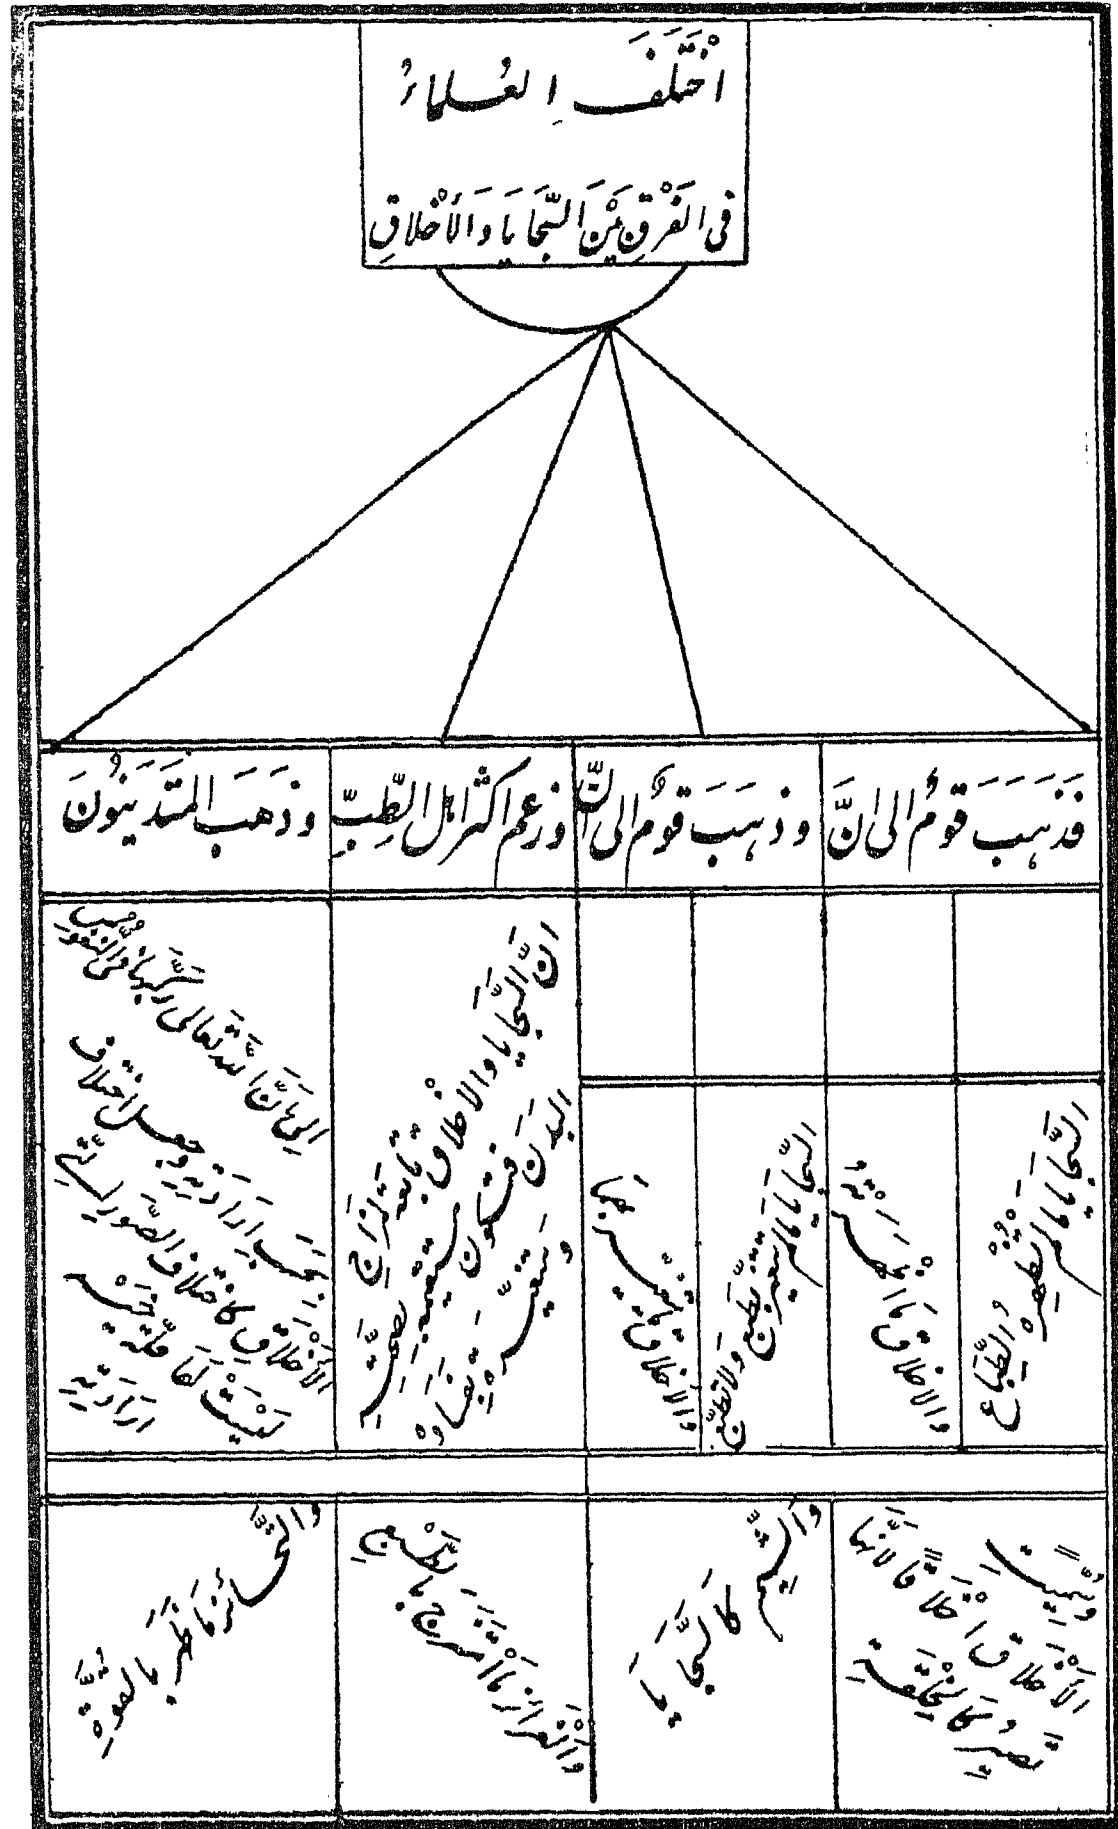 اخْتَلَفَ الْعُلَمَاءُ
فِى الفَرْقِ بَيْنَ السَّجَايَا وَالأَخْلَاقِ
فَذَهَبَ قَوْمٌ الى انَّ
وذهَبَ قَوْمٌ الى انَّ
وزعم اكثر اهل الطِّبِّ
وذَهَبَ المتَدَيِّنُونَ
السَّجايا مالم يُظْهِره الطِّبَاع
والاخلاق ما
السَّجايا مالم يتغير بطبع ولا تطبّع
والاخلاق
انَّ السَّجايا والاخلاق تابعة لمزاج
البدن فتكون مستقيمة بصحَّته
ومتغيّرة بفساده
الى انَّ اللّه تعالى ركّبها فى النفوس
بحسب ارَادَتِهِ وجعل اختلاف
الأَخْلاق كاختلاف الصُّور
لَيْسَتْ لهَا
ارَادَتِهِ
وسُمِّيَتِ
الأَخْلاق اخْلَاقًا لأنَّها
تصيرُ كَالْخِلْقَة
والشِّيَم كالسَّجايَا
وَالْغرائز مَا امْتَزَجَ بالطَّبْعِ
والنَّحائز مَا ظَهَرَ بالقُوَّةِ